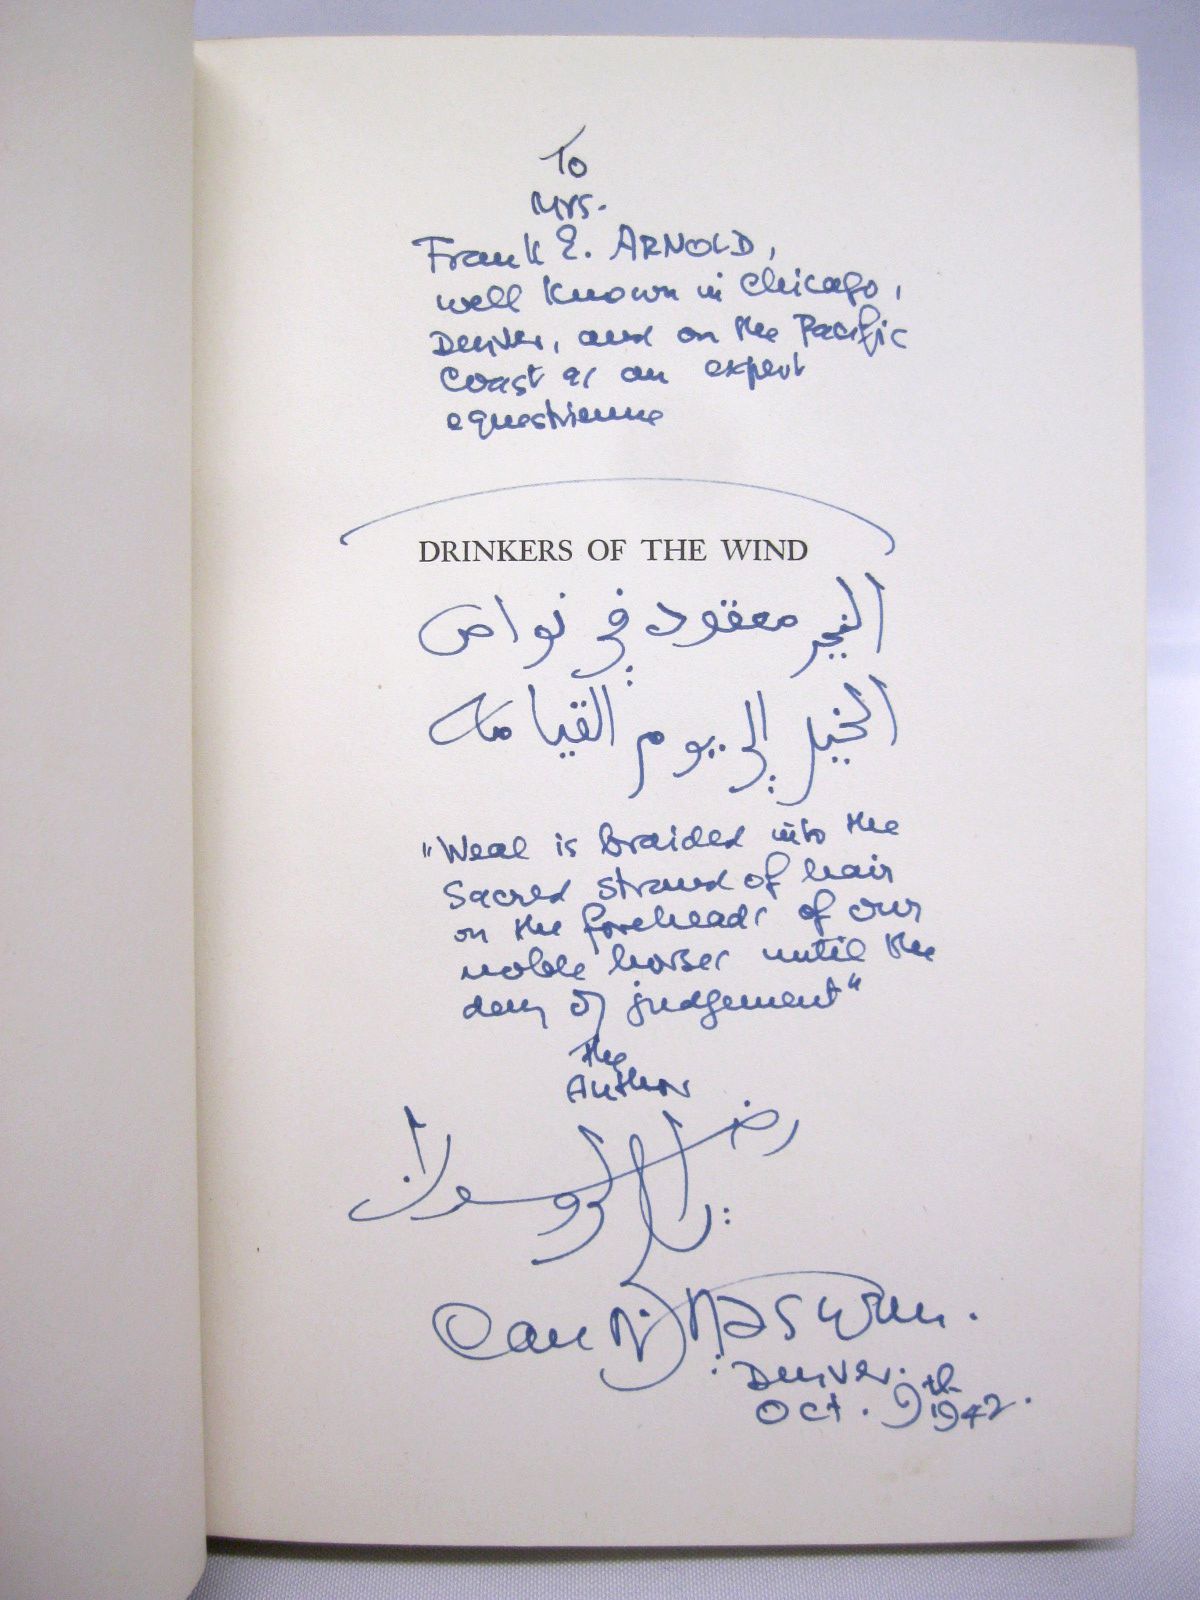 To
Mrs.
Frank E. ARNOLD,
well known in Chicago,
Denver, and on the Pacific
Coast as an expert
equestrienne
DRINKERS OF THE WIND
الخير معقود في نواص
الخيل إلى يوم القيامة
"Weal is braided into the
Sacred strand of hair
on the foreheads of our
noble horses until the
day of judgement"
The
Author
Carl
Raswan.
Denver.
Oct. 9th
1942.